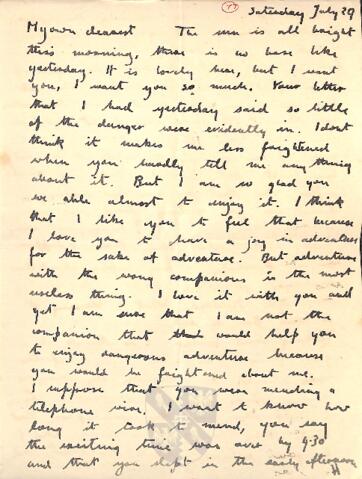 (77)
Saturday July 29
My own dearest The sun is all bright
this morning, there is no haze like
yesterday. It is lovely here, but I want
you, I want you so much. Your letter
that I had yesterday said so little
of the danger were evidently in. I dont
think it makes me less frightened
when you hardly tell me anything
about it. But I am so glad you
were able almost to enjoy it. I think
that I like you to feel that because
I love you to have a joy in adventure
for the sake of adventure. But adventure
with the wrong companions is the most
useless thing. I love it with you and
yet I am sure that I am not the
companion that would help you
to enjoy dangerous adventure because
you would be frightened about me.
I suppose that you were mending a
telephone wire, I want to know how
long it took to mend, you say
the exciting time was over by 9.30
and that you slept in the early afternoon